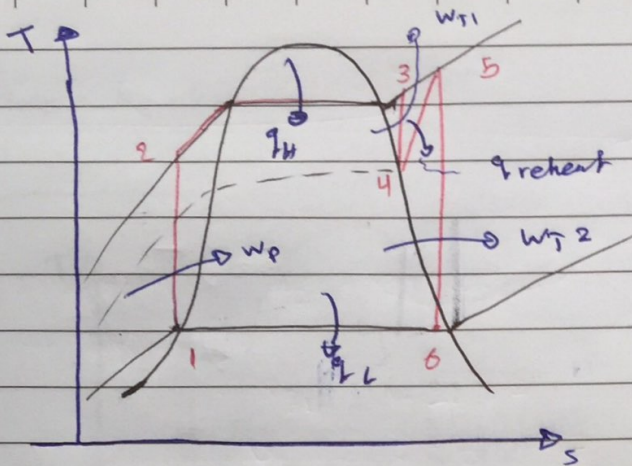 WT1
T
3
5
2
qH
4
q reheat
WP
WT2
1
qL
6
S